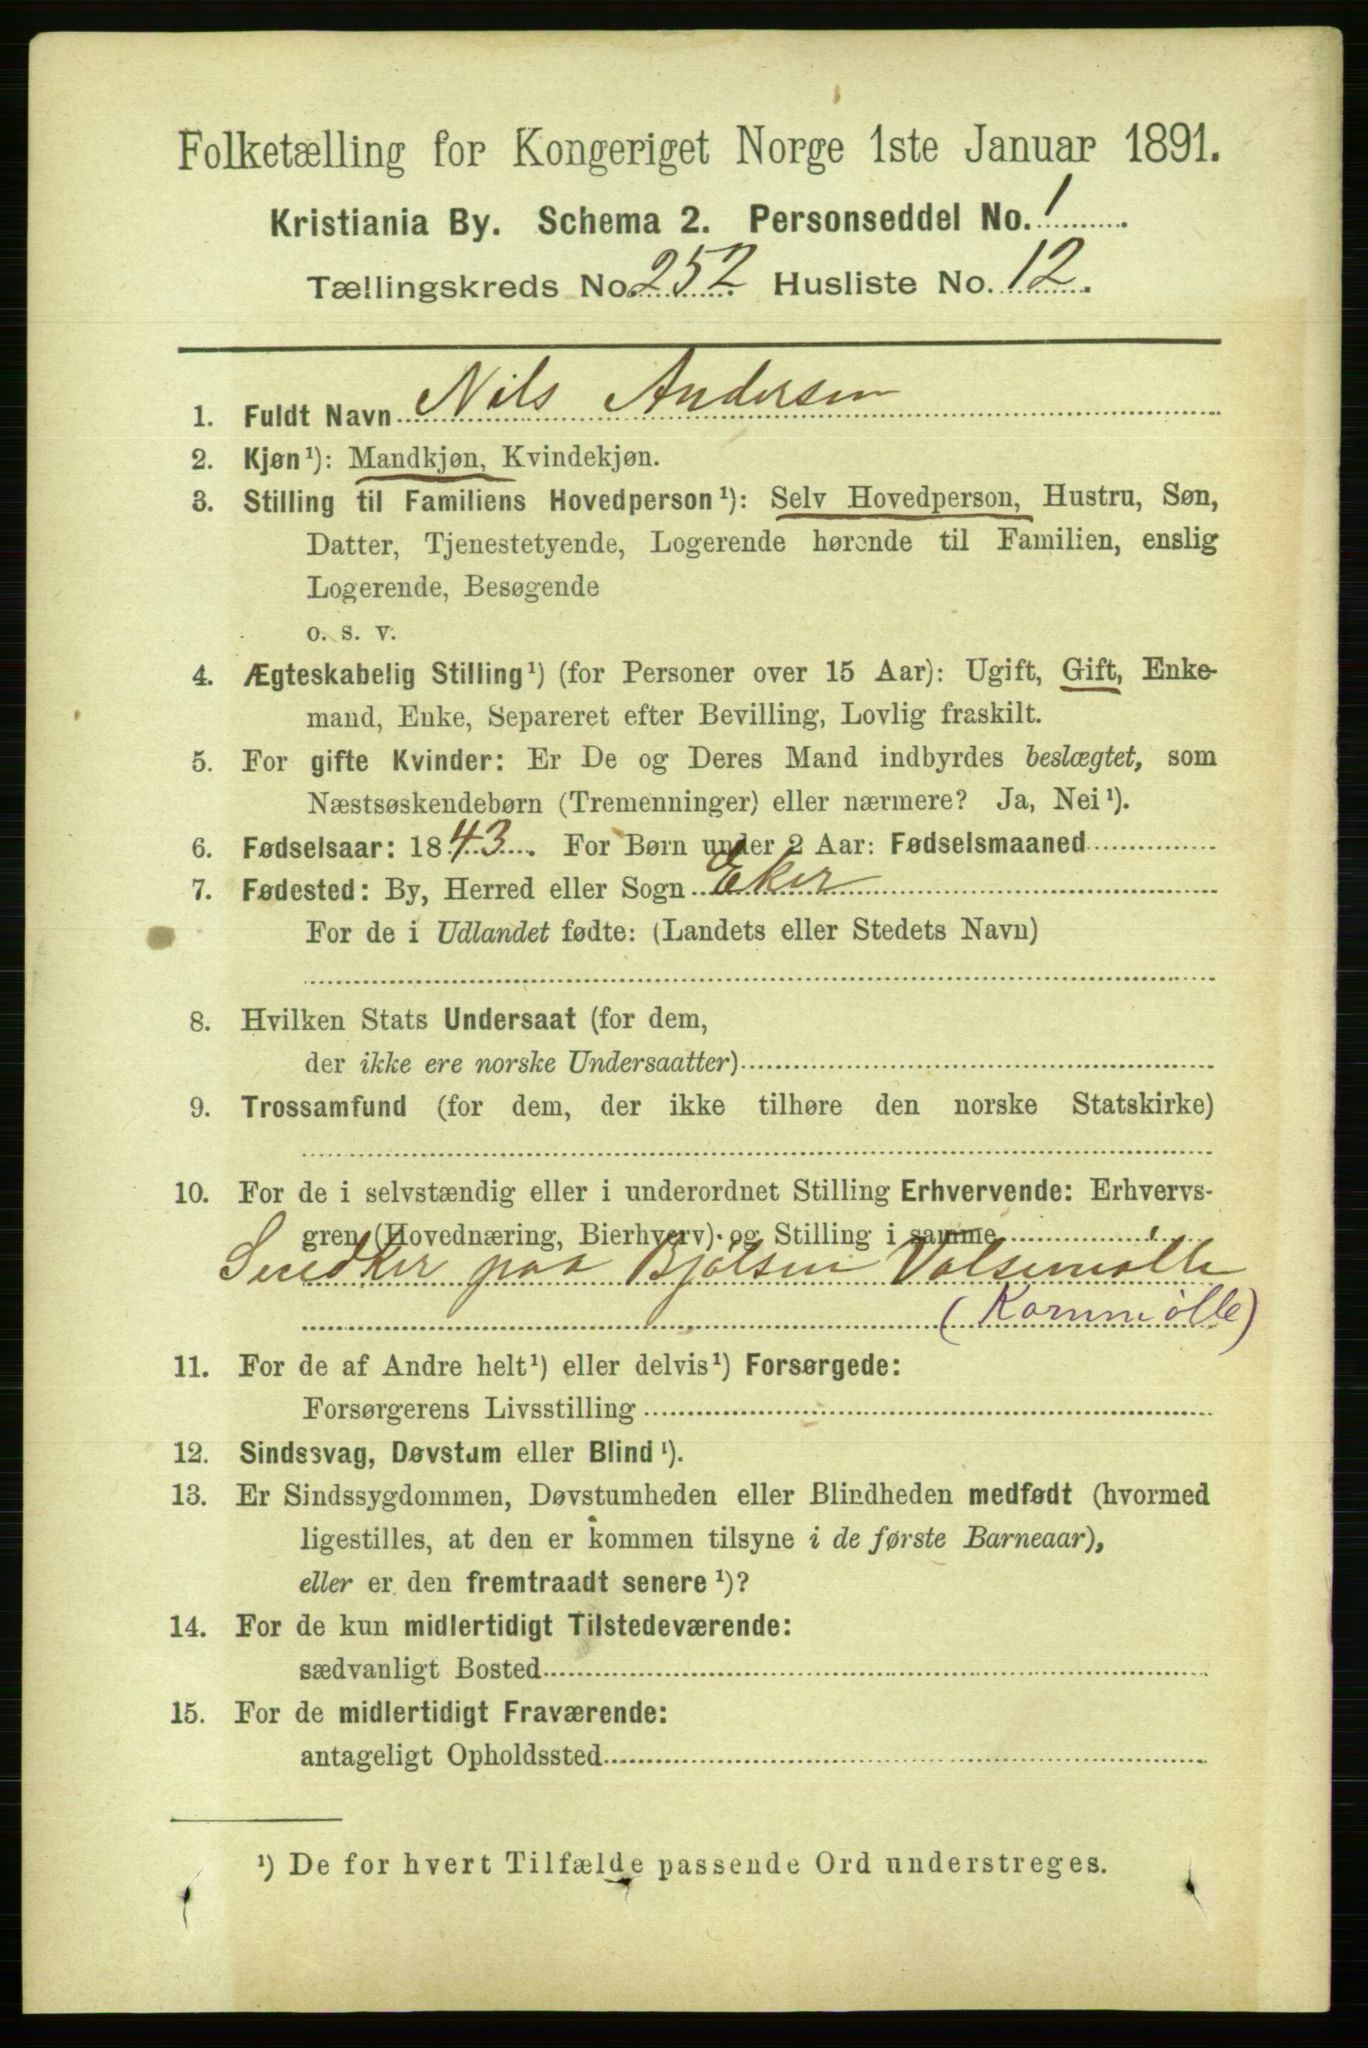 Folketælling for Kongeriget Norge 1ste Januar 1891.
Kristiania By. Schema 2. Personseddel No. 1
Tællingskreds No. 252 Husliste No. 12.
1. Fuldt Navn Nils Andersen
2. Kjøn¹): Mandkjøn, Kvindekjøn.
3. Stilling til Familiens Hovedperson¹): Selv Hovedperson, Hustru, Søn,
Datter, Tjenestetyende, Logerende hørende til Familien, enslig
Logerende, Besøgende
o. s. v.
4. Ægteskabelig Stilling¹) (for Personer over 15 Aar): Ugift, Gift, Enke-
mand, Enke, Separeret efter Bevilling, Lovlig fraskilt.
5. For gifte Kvinder: Er De og Deres Mand indbyrdes beslægtet, som
Næstsøskendebørn (Tremenninger) eller nærmere? Ja, Nei¹).
6. Fødselsaar: 1843. For Børn under 2 Aar: Fødselsmaaned
7. Fødested: By, Herred eller Sogn Eker
For de i Udlandet fødte: (Landets eller Stedets Navn)
8. Hvilken Stats Undersaat (for dem,
der ikke ere norske Undersaatter)
9. Trossamfund (for dem, der ikke tilhøre den norske Statskirke)
10. For de i selvstændig eller i underordnet Stilling Erhvervende: Erhvervs-
gren (Hovednæring, Bierhverv) og Stilling i samme
Snedker paa Bjølsen Valsemølle
(Kornmølle)
11. For de af Andre helt¹) eller delvis¹) Forsørgede:
Forsørgerens Livsstilling
12. Sindssvag, Døvstum eller Blind¹).
13. Er Sindssygdommen, Døvstumheden eller Blindheden medfødt (hvormed
ligestilles, at den er kommen tilsyne i de første Barneaar),
eller er den fremtraadt senere¹)?
14. For de kun midlertidigt Tilstedeværende:
sædvanligt Bosted
15. For de midlertidigt Fraværende:
antageligt Opholdssted
¹) De for hvert Tilfælde passende Ord understreges.